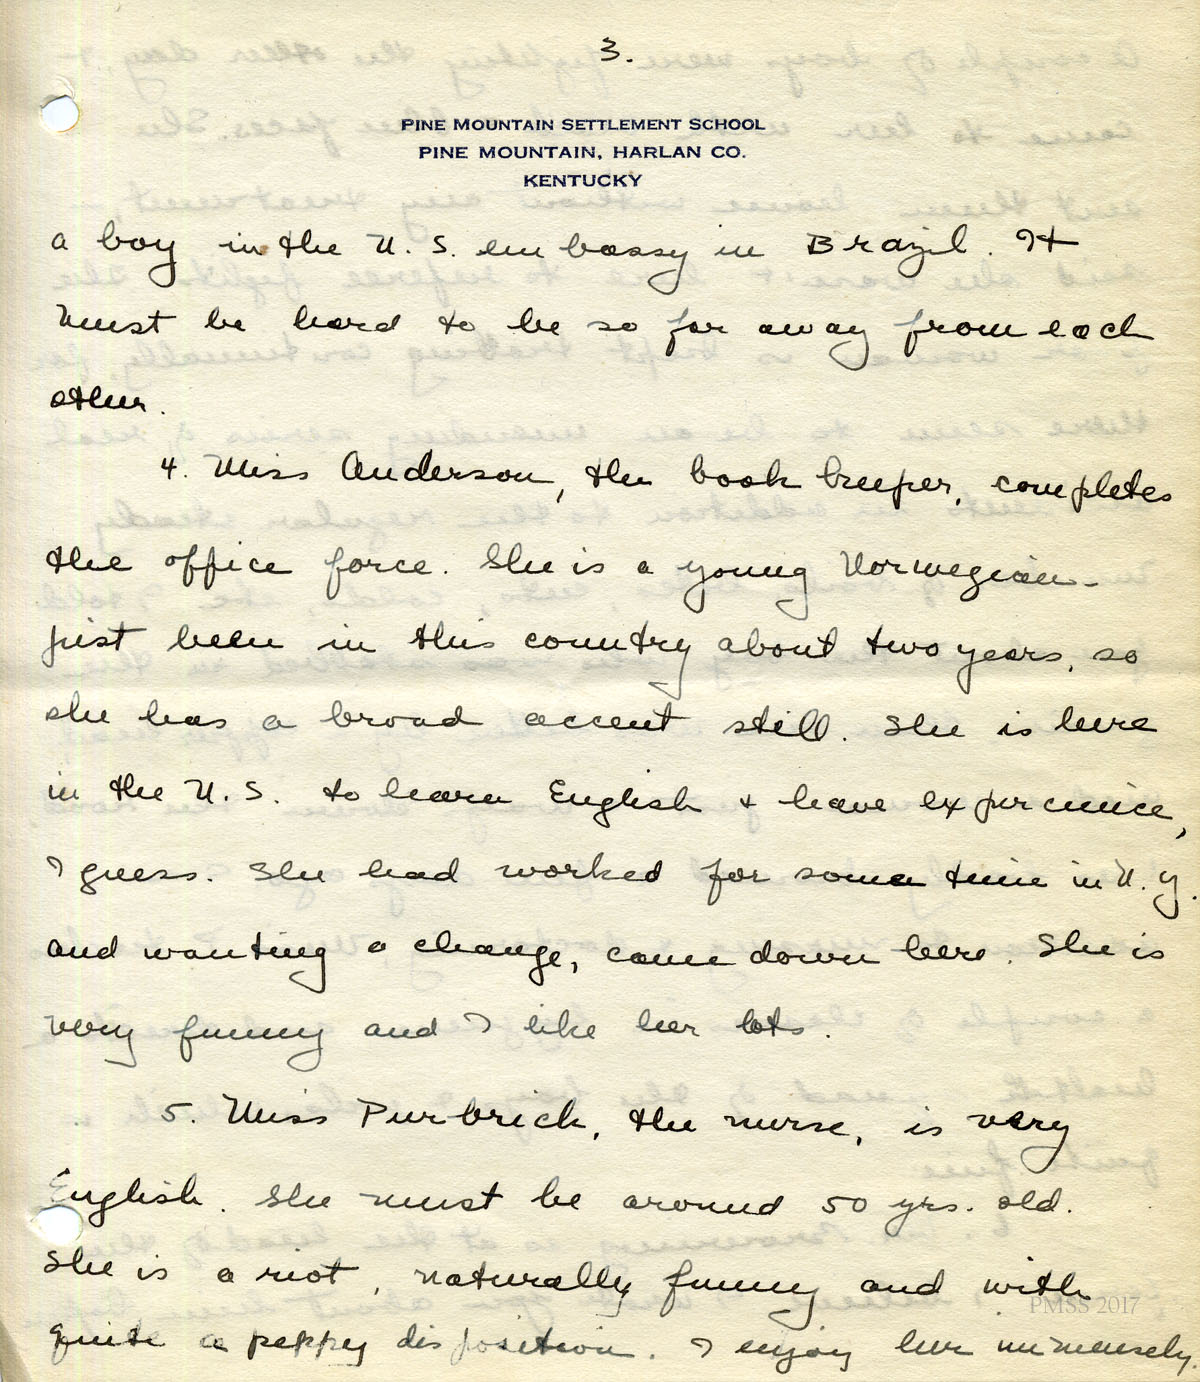 3.
PINE MOUNTAIN SETTLEMENT SCHOOL
PINE MOUNTAIN, HARLAN CO.
KENTUCKY
a boy in the U. S. embassy in Brazil. It
must be hard to be so far away from each
other.
4. Miss Anderson, the book keeper, completes
the office force. She is a young Norwegian -
just been in this country about two years, so
she has a broad accent still. She is here
in the U. S. to learn English + have experience,
I guess. She had worked for some time in N. Y.
and wanting a change, came down here. She is
very funny and I like her lots.
5. Miss Purbrick, the nurse, is very
English. She must be around 50 yrs. old.
She is a riot, naturally funny and with
PMSS 2017
quite a peppy disposition. I enjoy her immensely.